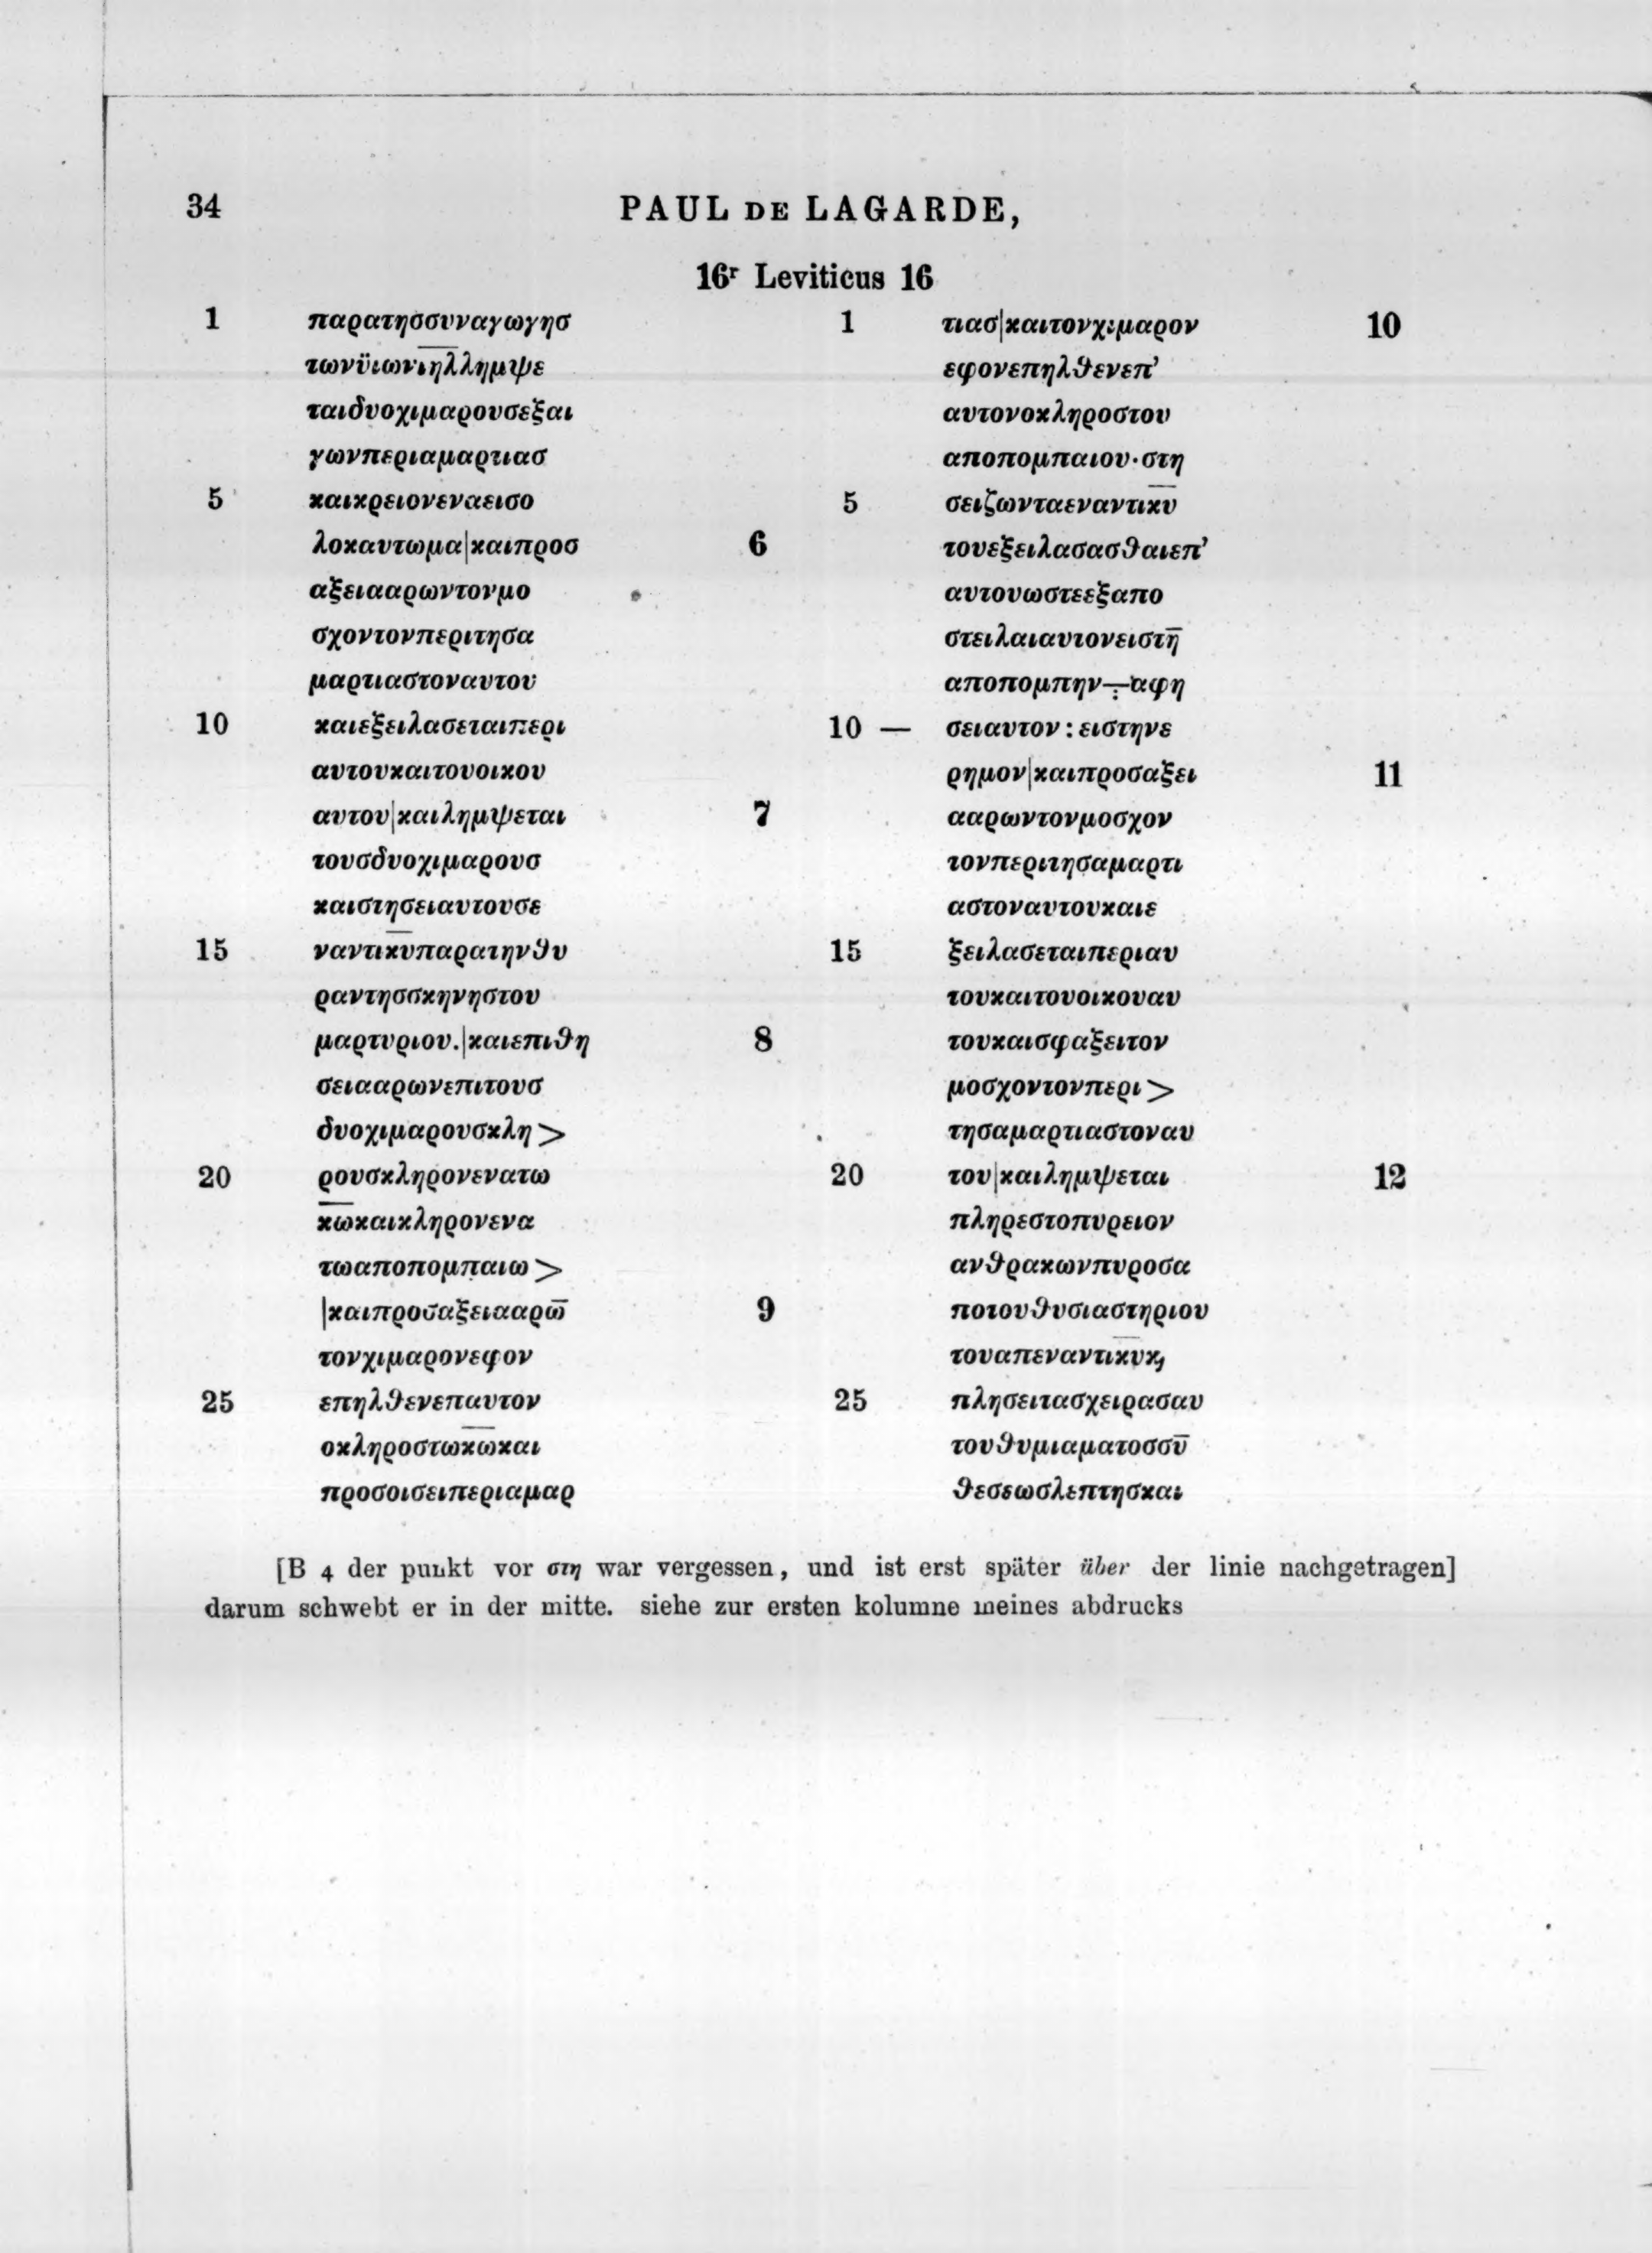 34 PAUL DE LAGARDE,
16ʳ Leviticus 16
1 παρατησσυναγωγησ
τωνϋιωνι̅η̅λ̅λημψε
ταιδυοχιμαρουσεξαι
γωνπεριαμαρτιασ
5 καικρειονεναεισο
λοκαυτωμα|καιπροσ 6
αξειααρωντονμο
σχοντονπεριτησα
μαρτιαστοναυτου
10 καιεξειλασεταιπερι
αυτουκαιτουοικου
αυτου|καιλημψεται 7
τουσδυοχιμαρουσ
καιστησειαυτουσε
15 ναντικ̅υ̅παρατηνθυ
ραντησσκηνηστου
μαρτυριου.|καιεπιθη 8
σειααρωνεπιτουσ
δυοχιμαρουσκλη>
20 ρουσκληρονενατω
κ̅ω̅καικληρονενα
τωαποπομπαιω>
|καιπροσαξειααρω̅ 9
τονχιμαρονεφον
25 επηλθενεπαυτον
οκληροστωκ̅ω̅και
προσοισειπεριαμαρ
1 τιασ|καιτονχιμαρον 10
εφονεπηλθενεπ’
αυτονοκληροστου
αποπομπαιου·στη
5 σειζωνταεναντικ̅υ̅
τουεξειλασασθαιεπ’
αυτουωστεεξαπο
στειλαιαυτονειστη̅
αποπομπην—̣̇αφη
10 — σειαυτον:ειστηνε
ρημον|καιπροσαξει 11
ααρωντονμοσχον
τονπεριτησαμαρτι
αστοναυτουκαιε
15 ξειλασεταιπεριαυ
τουκαιτουοικουαυ
τουκαισφαξειτον
μοσχοντονπερι>
τησαμαρτιαστοναυ
20 του|καιλημψεται 12
πληρεστοπυρειον
ανθρακωνπυροσα
ποτουθυσιαστηριου
τουαπεναντικ̅υ̅κ,
25 πλησειτασχειρασαυ
τουθυμιαματοσσυ̅
θεσεωσλεπτησκαι
[B 4 der punkt vor στη war vergessen, und ist erst später über der linie nachgetragen]
darum schwebt er in der mitte. siehe zur ersten kolumne meines abdrucks